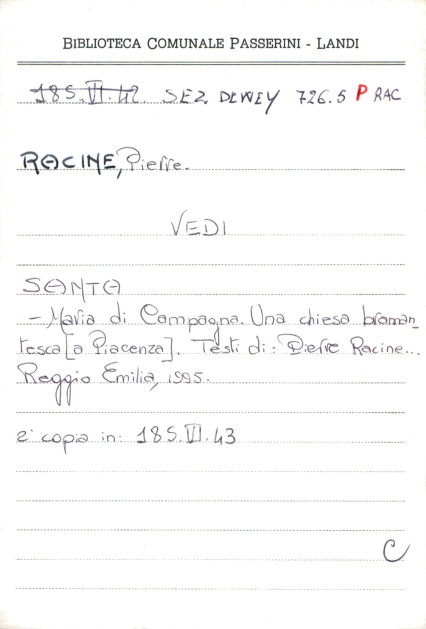 BIBLIOTECA COMUNALE PASSERINI - LANDI
185.VI.42. SEZ. DEWEY 726.5 P RAC
RACINE, Pierre.
VEDI
SANTA
- Maria di Campagna. Una chiesa braman_
tesca [a Piacenza]. Testi di: Pierre Racine...
Reggio Emilia, 1995.
2ª copia in: 185.VI.43
C